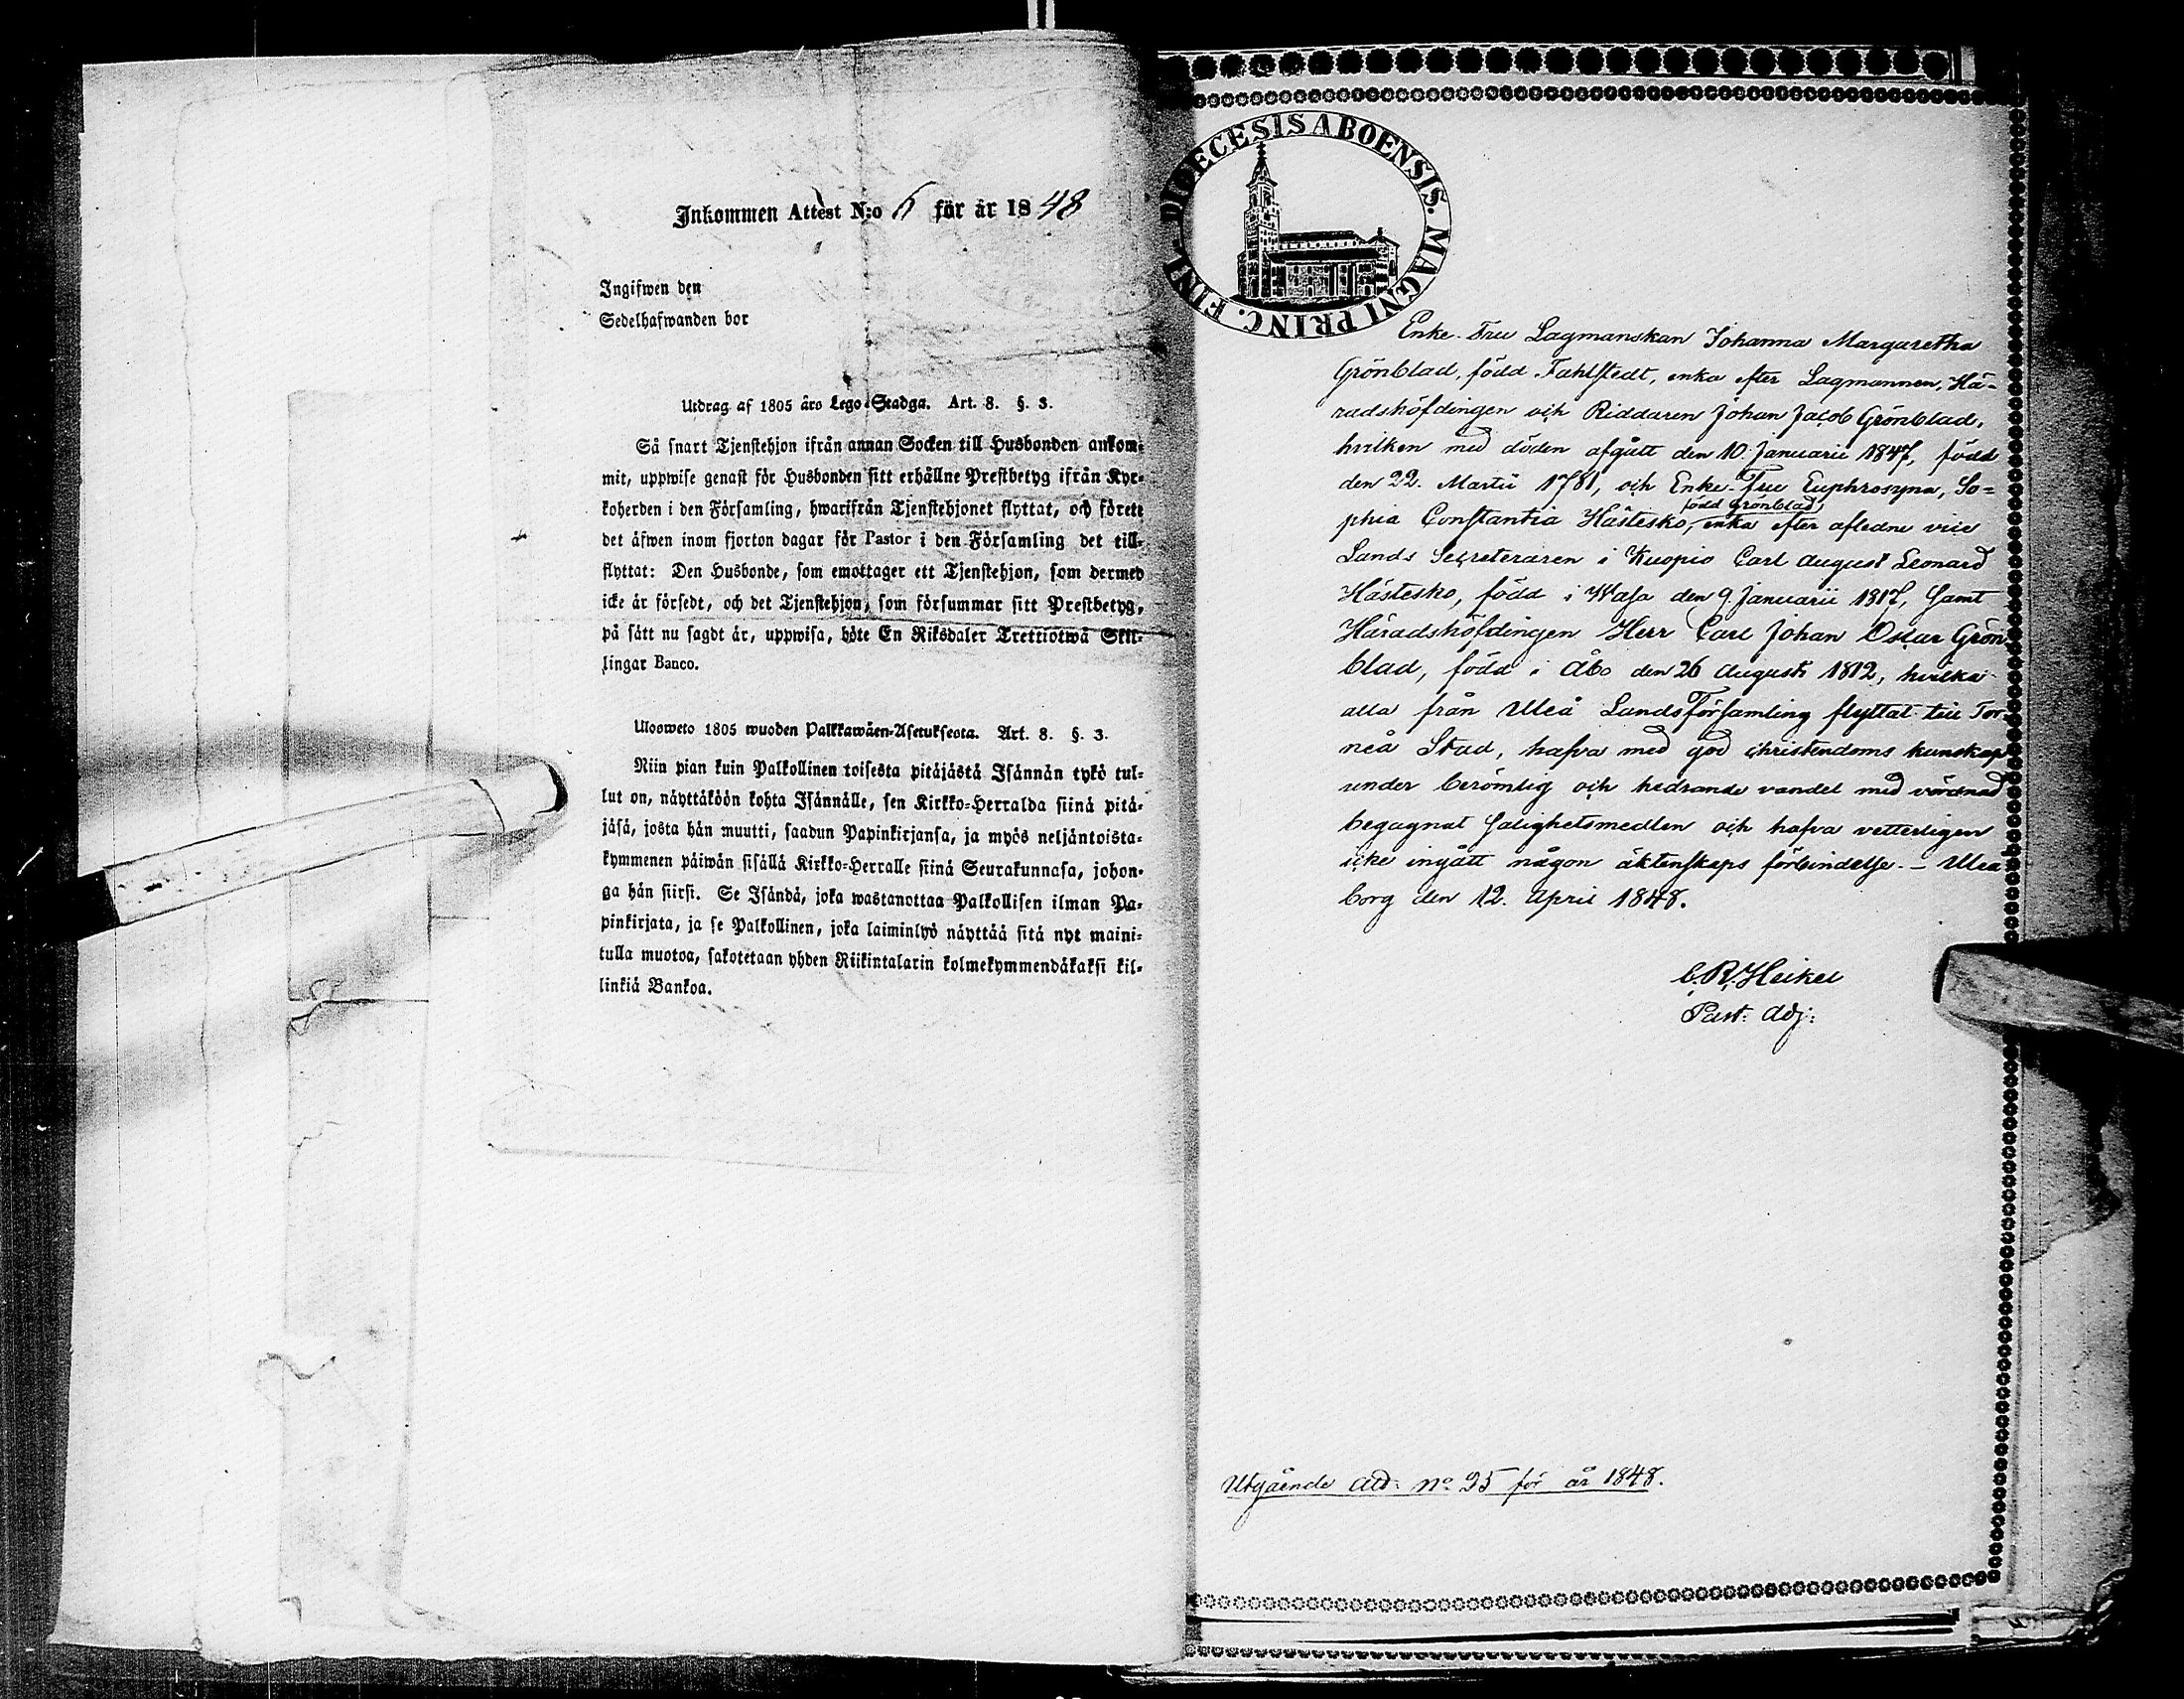 Inkommen Attest N:o 6 för år 1848
Ingifwen den
Sedelhafwanden bor
Utdrag af 1805 års Lego-Stadga. Art. 8. §. 3.
Så snart Tjenstehjon ifrån annan Socken till Husbonden ankom-
mit, uppwise genast för Husbonden sitt erhållne Prestbetyg ifrån Kyr-
koherden i den Församling, hwarifrån Tjenstehjonet flyttat, och förete
det äfwen inom fjorton dagar för Pastor i den Församling det till-
flyttat: Den Husbonde, som emottager ett Tjenstehjon, som dermed
icke är försedt, och det Tjenstehjon, som försummar sitt Prestbetyg,
på sätt nu sagdt är, uppwisa, böte En Riksdaler Trettiotwå Skil-
lingar Banco.
Ulosweto 1805 wuoden Palkkawäen-Asetuksesta. Art. 8. §. 3.
Niin pian kuin Palkollinen toisesta pitäjästä Isännän tykö tul-
lut on, näyttäköön kohta Isännälle, sen Kirkko-Herralda siinä pitä-
jäsä, josta hän muutti, saadun Papinkirjansa, ja myös neljäntoista-
kymmenen päiwän sisällä Kirkko-Herralle siinä Seurakunnasa, johon-
ga hän siirsi. Se Isändä, joka wastanottaa Palkollisen ilman Pa-
pinkirjata, ja se Palkollinen, joka laiminlyö näyttää sitä nyt maini-
tulla muotoa, sakotetaan yhden Riikintalarin kolmekymmendäkaksi kil-
linkiä Bankoa.
DIOECESIS ABOENSIS. MAGNI PRINC. FINL.
Enke-Fru Lagmanskan Johanna Margaretha
Grönblad, född Fahlstedt, enka efter Lagmannen, Hä-
radshöfdingen och Riddaren Johan Jacob Grönblad,
hvilken med döden afgått den 10. Januarii 1847, född
den 22. Martii 1781, och Enke-Fru Euphrosyna, So-
född Grönblad,
phia Constantia Hästesko, enka efter aflidne vice
Lands Secreteraren i Kuopio Carl August Leonard
Hästesko, född i Wasa den 9. Januarii 1817, samt
Häradshöfdingen Herr Carl Johan Oscar Grön
blad, född i Åbo den 26 Augusti 1812, hvilka
alla från Uleå Landsförsamling flyttat till Tor
neå Stad, hafva med god christendoms kunskap
under berömlig och hedrande vandel med vördnad
begagnat salighetsmedlen och hafva vetterligen
icke ingått någon äktenskaps förbindelse. – Uleå
borg den 12. April 1848.
C. R. Heikel
Past: Adj:
Utgående Att: No 25 för år 1848.